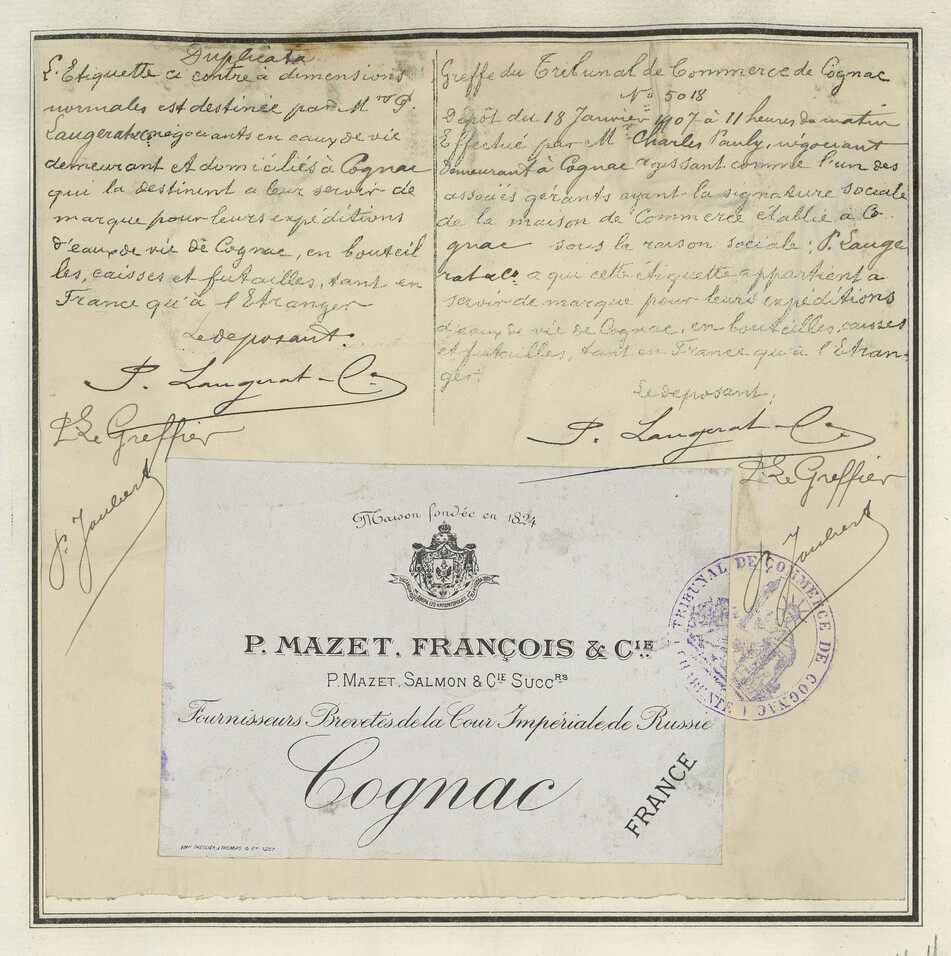 Duplicata
L'Etiquette ci contre à dimensions
normales est destinée par M.rs P.
Laugerat & Co négociants en eaux de vie
demeurant et domiciliés à Cognac
qui la destinent à leur servir de
marque pour leurs expéditions
d'eaux de vie de Cognac, en bouteil
les, caisses et futailles, tant en
France qu'à l'Etranger
Le deposant.
P. Laugerat & Co
P. Le Greffier
P. Joubert
Greffe du Tribunal de Commerce de Cognac
No 5018
Dépôt du 18 Janvier 1907 à 11 heures du matin
Effectué par Mr Charles Pauly, négociant
demeurant à Cognac agissant comme l'un des
associés gérants ayant la signature sociale
de la maison de Commerce établie à Co-
gnac sous la raison sociale: P. Lauge
rat & Co à qui cette étiquette appartient à
servir de marque pour leurs expéditions
d'eaux de vie de Cognac, en bouteilles, caisses
et futailles, tant en France qu'à l'Etran-
ger.
Le deposant,
P. Laugerat & Co
P. Le Greffier
P. Joubert
Maison fondée en 1824
P. MAZET, FRANÇOIS & CIE
P. MAZET, SALMON & CIE SUCCRS
Fournisseurs Brevetés de la Cour Impériale de Russie
Cognac
FRANCE
TRIBUNAL DE COMMERCE DE COGNAC